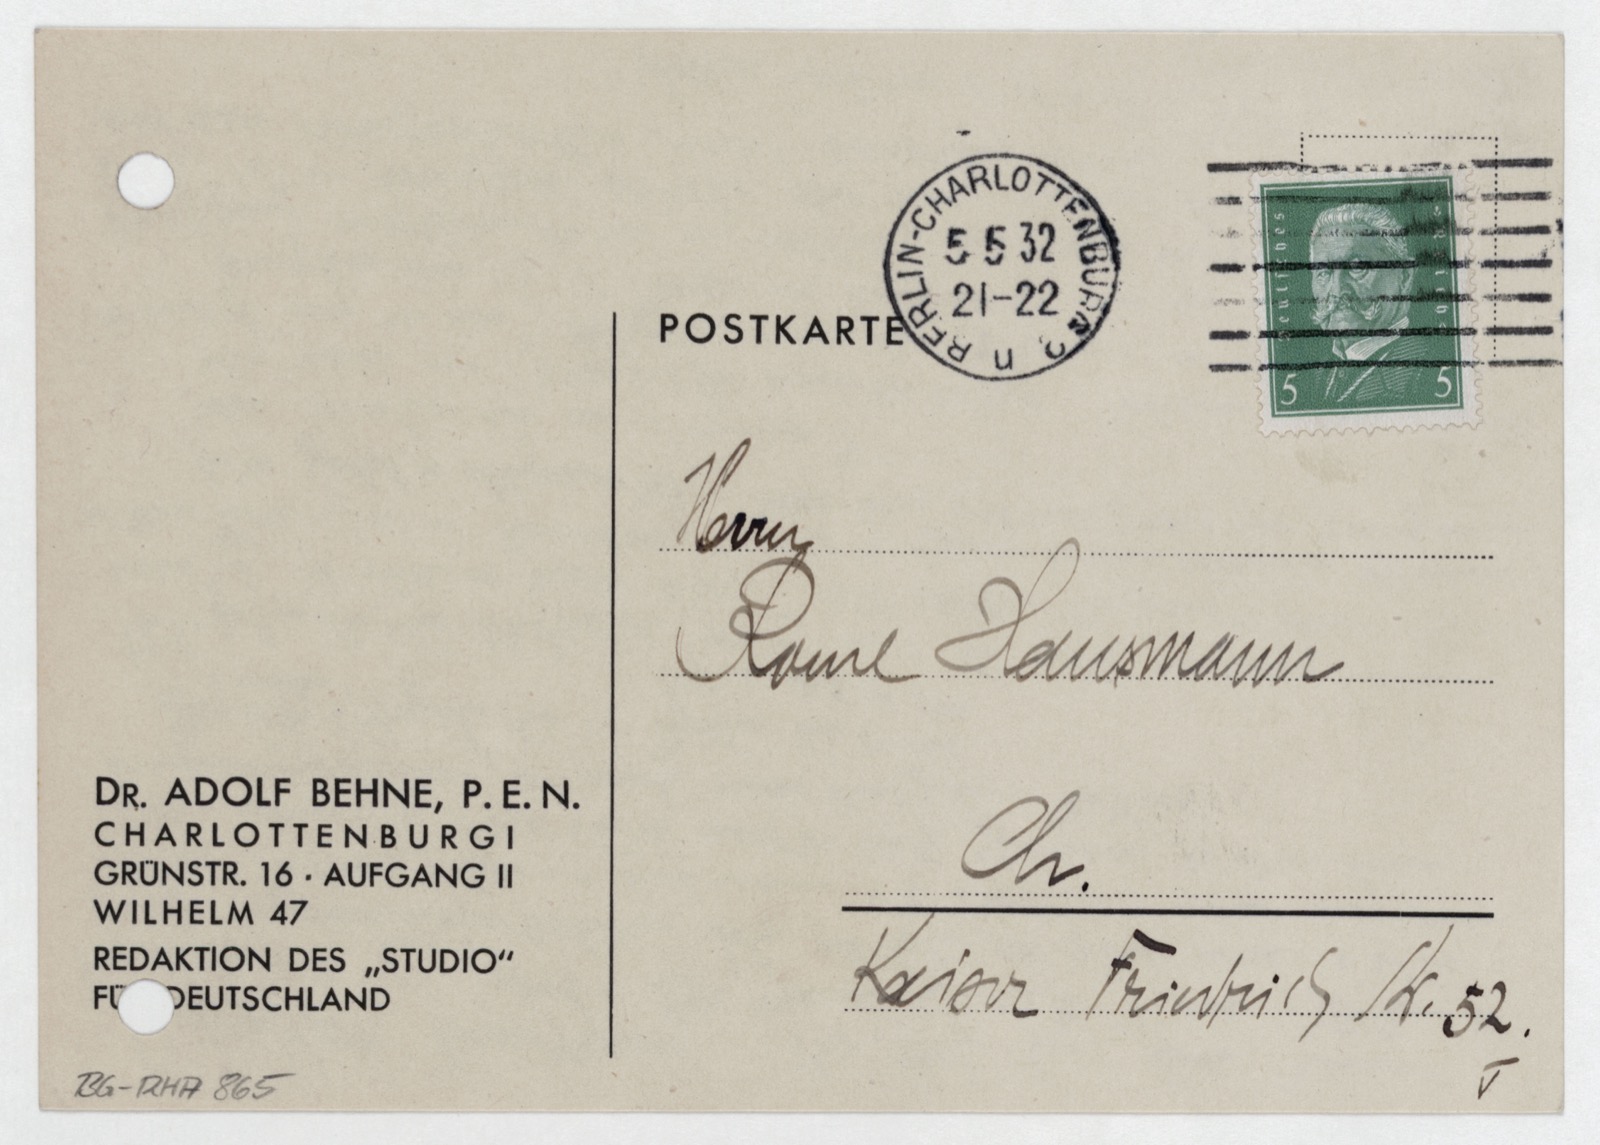 BERLIN-CHARLOTTENBURG 2
5 5 32
21-22
n
Deutsches Reich
5 5
POSTKARTE
Herrn
Raoul Hausmann
Ch.
Kaiser Friedrich Str. 52.
V
DR. ADOLF BEHNE, P. E. N.
CHARLOTTENBURG I
GRÜNSTR. 16 · AUFGANG II
WILHELM 47
REDAKTION DES „STUDIO“
FÜ DEUTSCHLAND
BG-RHA 865